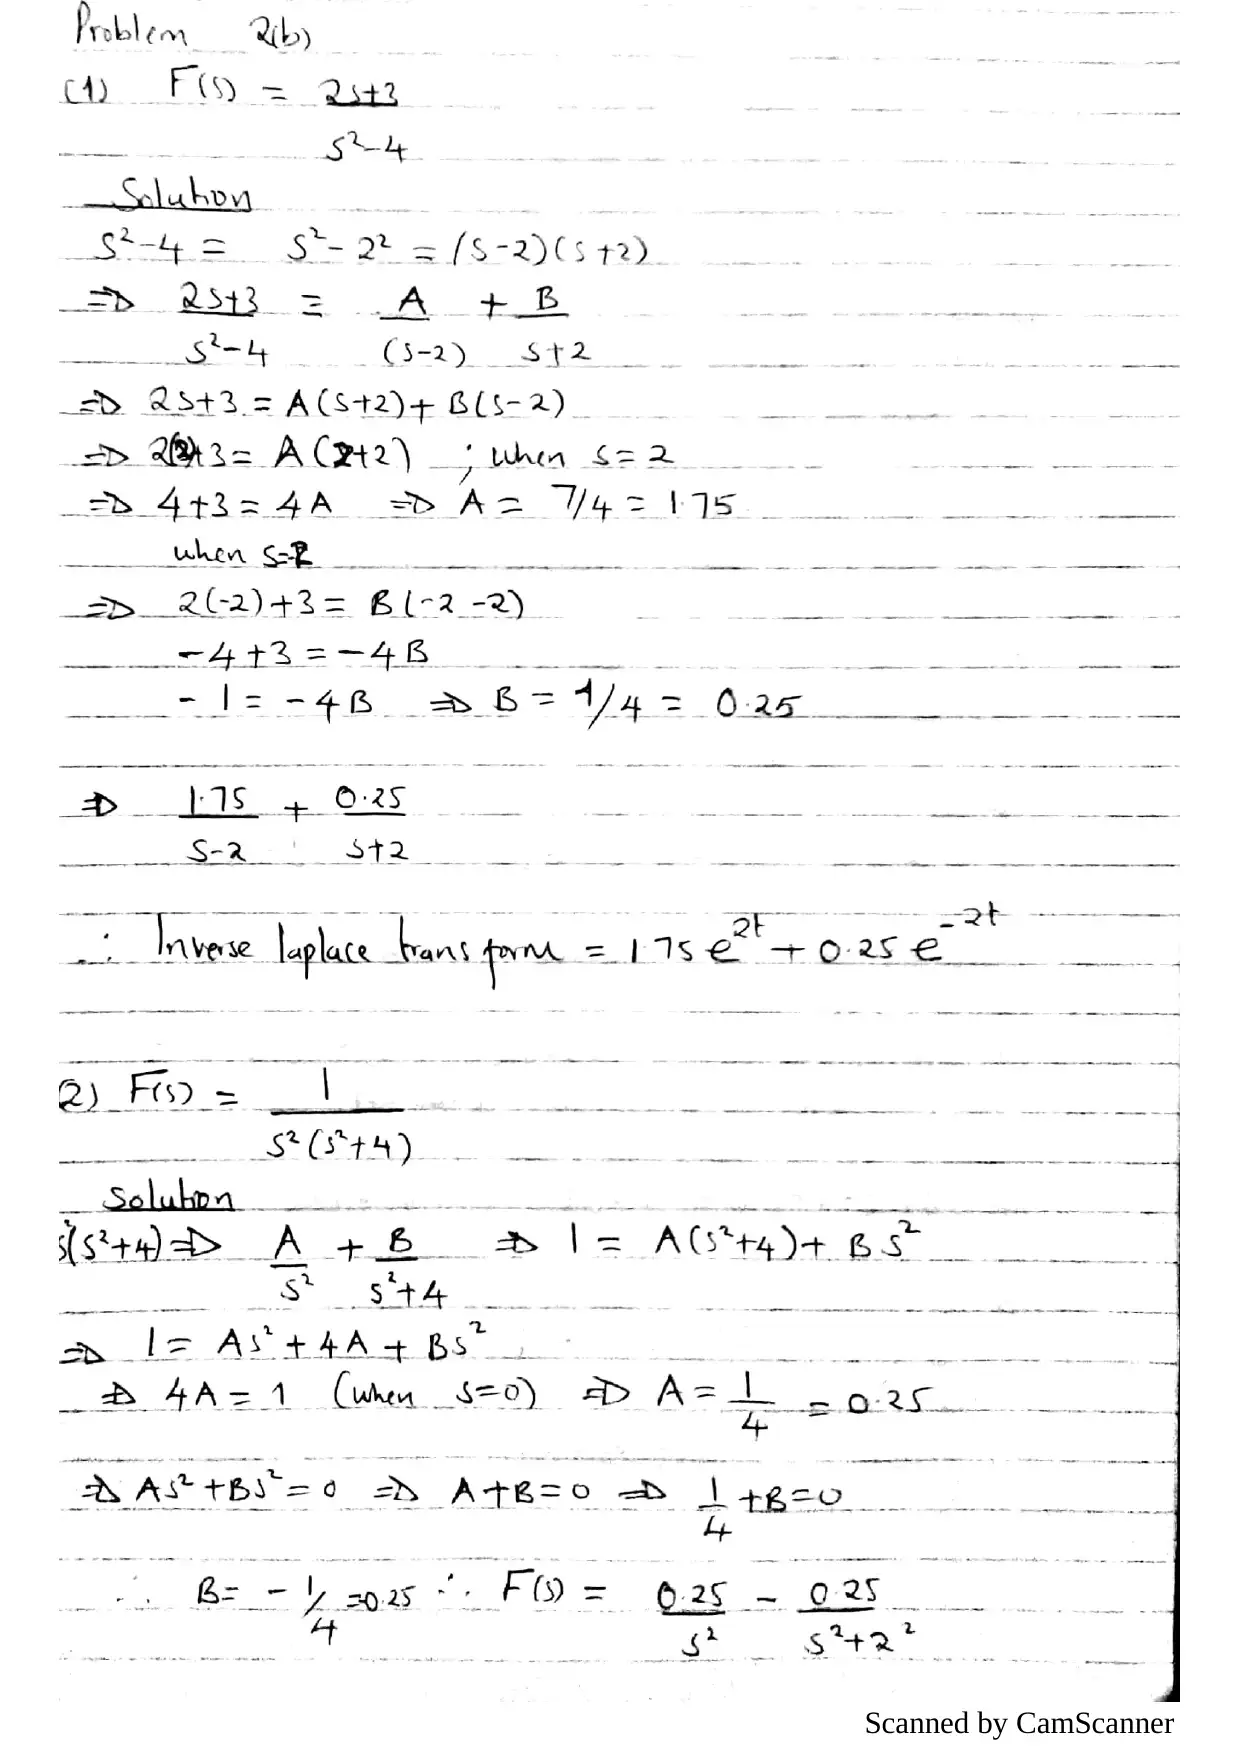 Problem 2(b)
(1) F(s) = 2s+3
s²-4
Solution
s²-4 = s²-2² = (s-2)(s+2)
⇒ 2s+3 = A + B
s²-4 (s-2) s+2
⇒ 2s+3 = A(s+2)+ B(s-2)
⇒ 2(2)+3 = A(2+2) ; when s=2
⇒ 4+3 = 4A ⇒ A = 7/4 = 1.75
when s=-2
⇒ 2(-2)+3 = B(-2-2)
-4+3 = -4B
-1 = -4B ⇒ B = 1/4 = 0.25
⇒ 1.75 + 0.25
s-2 s+2
∴ Inverse laplace transform = 1.75e^{2t} + 0.25e^{-2t}
2) F(s) = 1
s²(s²+4)
Solution
s²(s²+4) ⇒ A + B ⇒ 1 = A(s²+4)+ Bs²
s² s²+4
⇒ 1 = As² + 4A + Bs²
⇒ 4A = 1 (when s=0) ⇒ A = 1 = 0.25
4
⇒ As²+Bs²=0 ⇒ A+B=0 ⇒ 1 +B=0
4
∴ B= -1/4 =0.25 ∴ F(s) = 0.25 - 0.25
s² s²+2²
Scanned by CamScanner